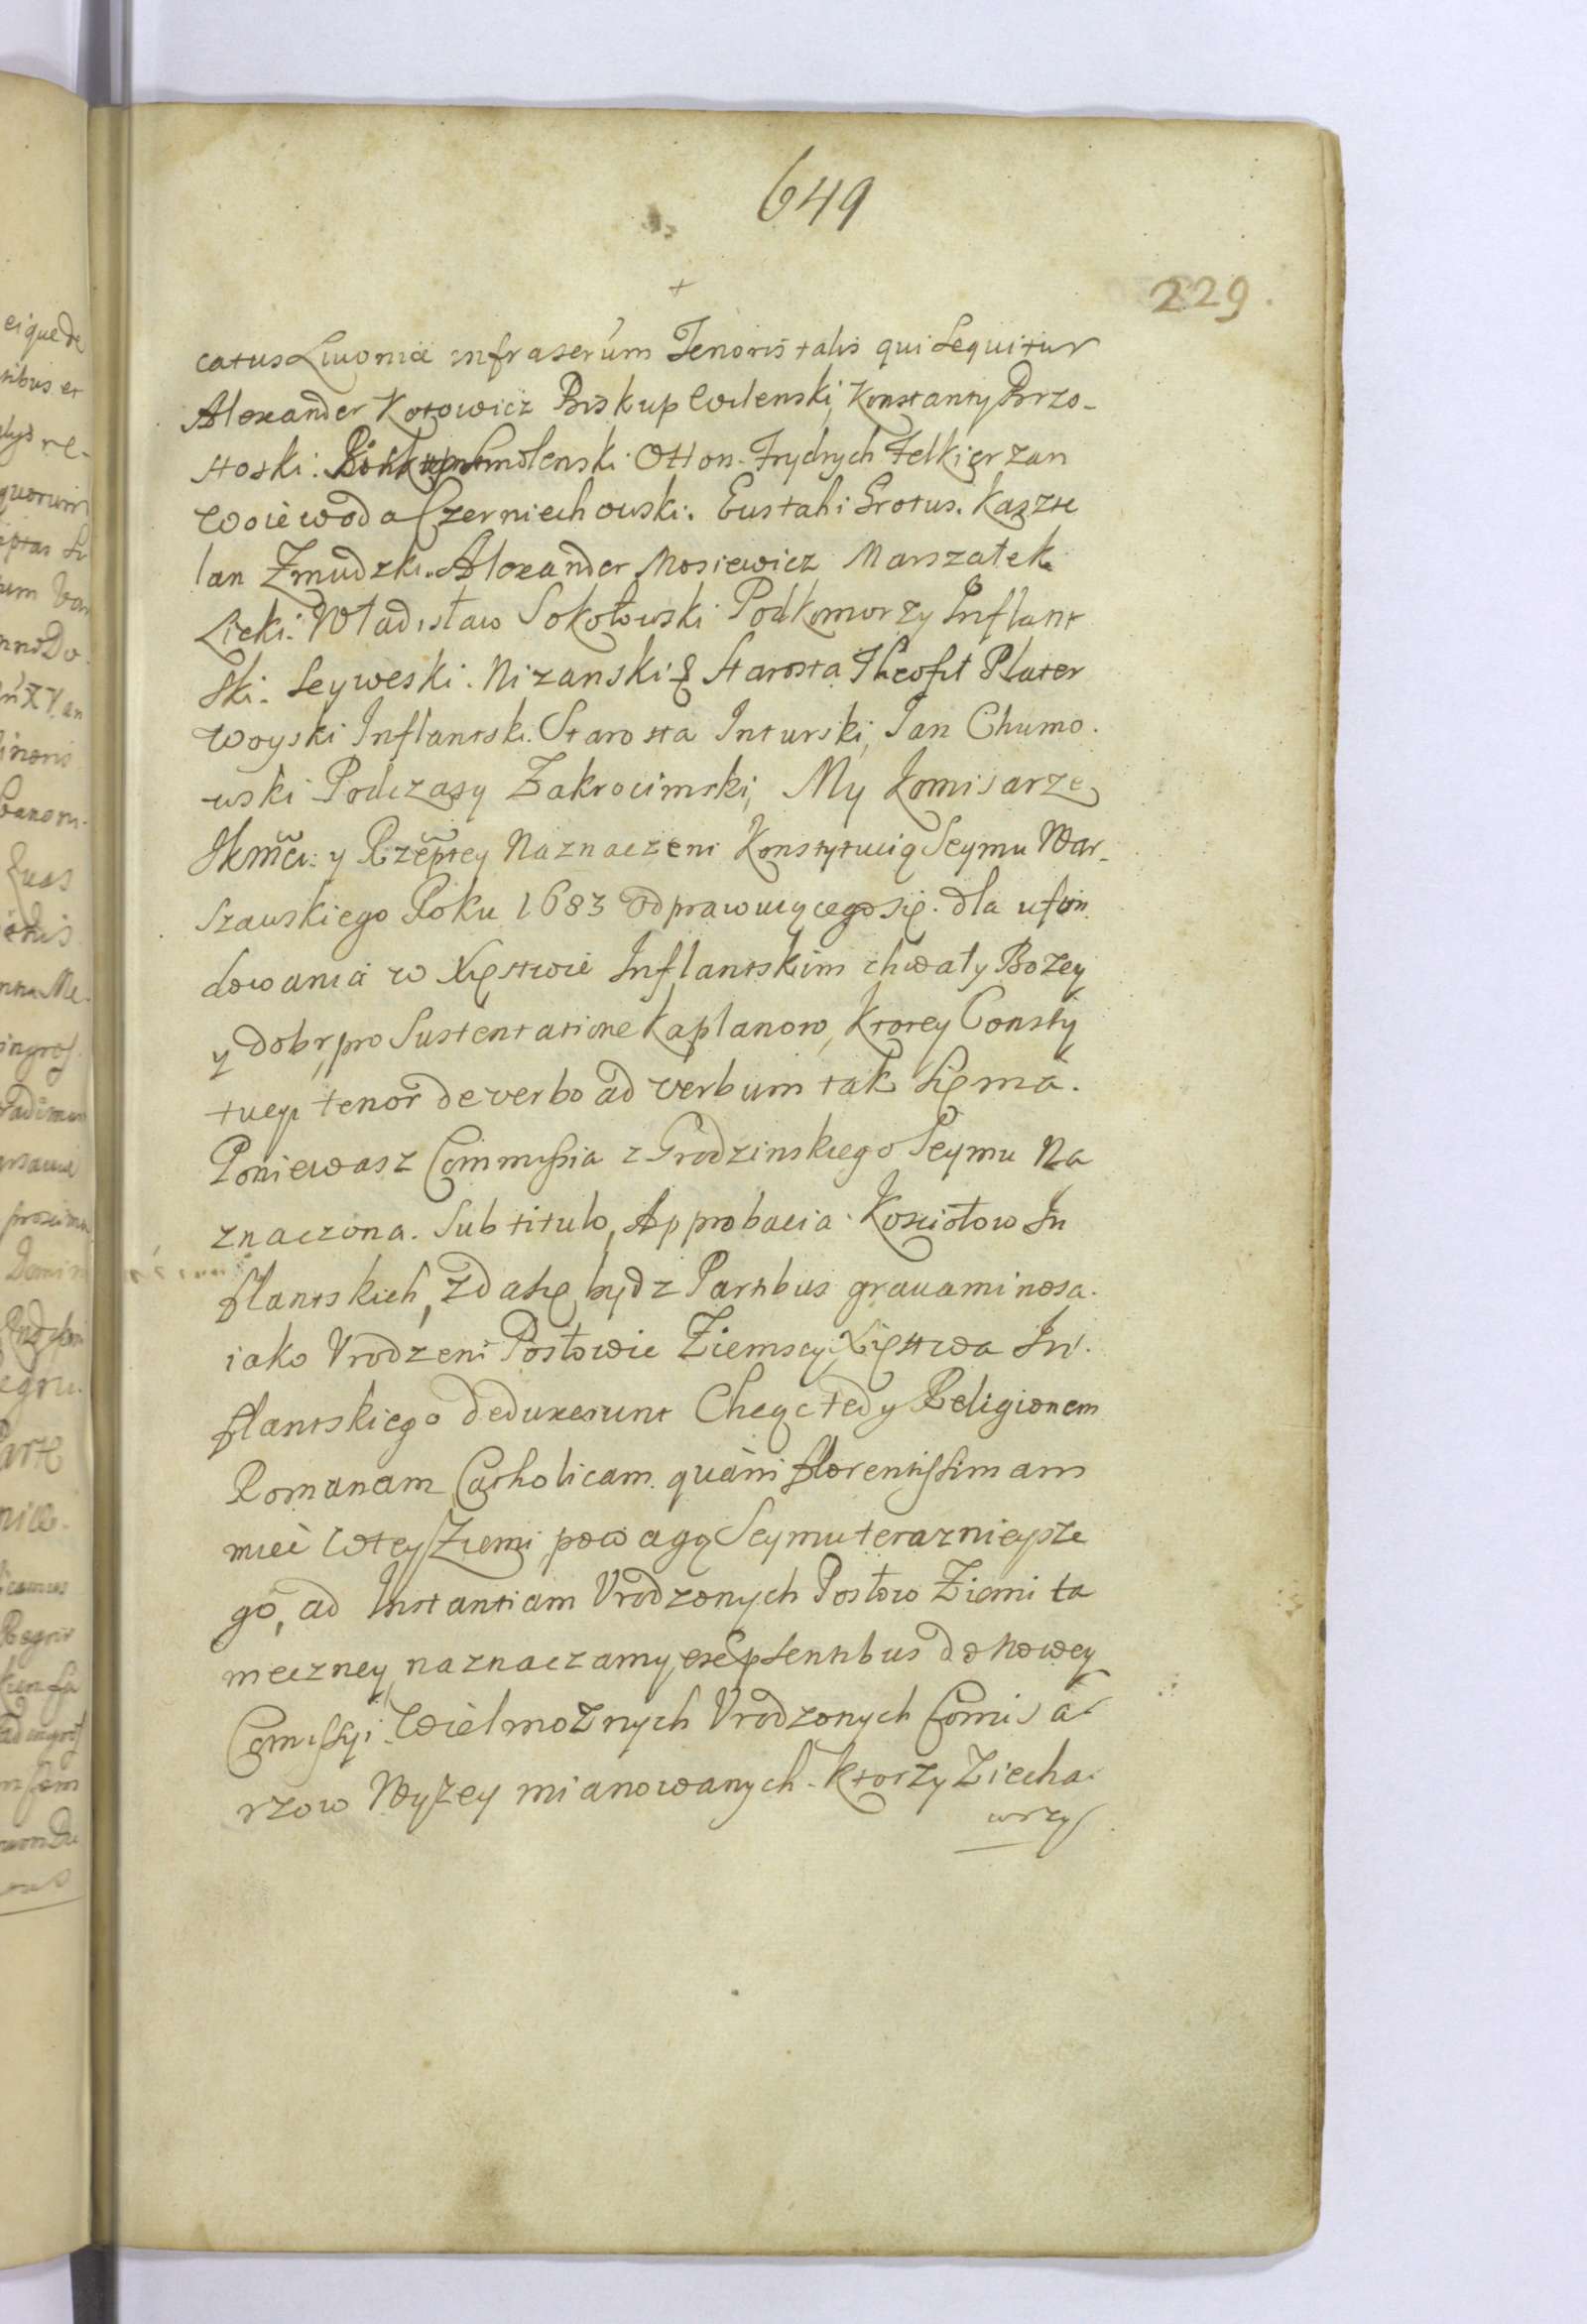 649
229.
catus Liuoniæ infraserúm Tenoris talis qui Sequitur
Alexander Kotowicz Biskup Wilenski, Konstanty Brzo-
stoski: Biskup Smolenski. Otton. Frydrych Felkierzan
Woiewoda Czerniechowski. Eustahi Grotus. Kaszte
lan Zmudzki. Alexander Mosiewicz Marszałek.
Licki. Władisław Sokołowski Podkomorzy Inflant
ski. Seyweski. Nizanski & Starosta Theofil Plater
Woyski Inflantski. Starosta Inturski, Jan Chumo.
wski Podczasy Zakrocimski, My Komisarze
Jkmči: y Rzeptey Naznaczeni Konstytucią Seymu War-
szawskiego Roku 1683 odprawuiącego się. dla ufun
dowania w Xięstwie Inflantskim chwały Bozey
y dobr, pro Sustentatione Kapłanow, Ktorey Consty
tucyi tenor de verbo ad verbum tak się ma.
Poniewasz Commissia z Grodzinskiego Seymu Na
znaczona. Sub titulo, Approbacia. Kosciołow In
flantskich, zda się bydz Partibus grauaminosa.
iako Vrodzeni Posłowie Ziemscy Xięstwa In.
flantskiego deduxerunt Chcąc tedy Religionem
Romanam Catholicam. quàm florentissimam
mieć w tey Ziemi, powagą Seymu terazniejsze
go, ad Instantiam Vrodzonych Posłow Ziemi ta
meczney, naznaczamy, ex absentibus do Nowey
Comissyi. Wielmoznych Vrodzonych Comisa
rzow Wyzey mianowanych. Ktorzy Ziecha.
wszy